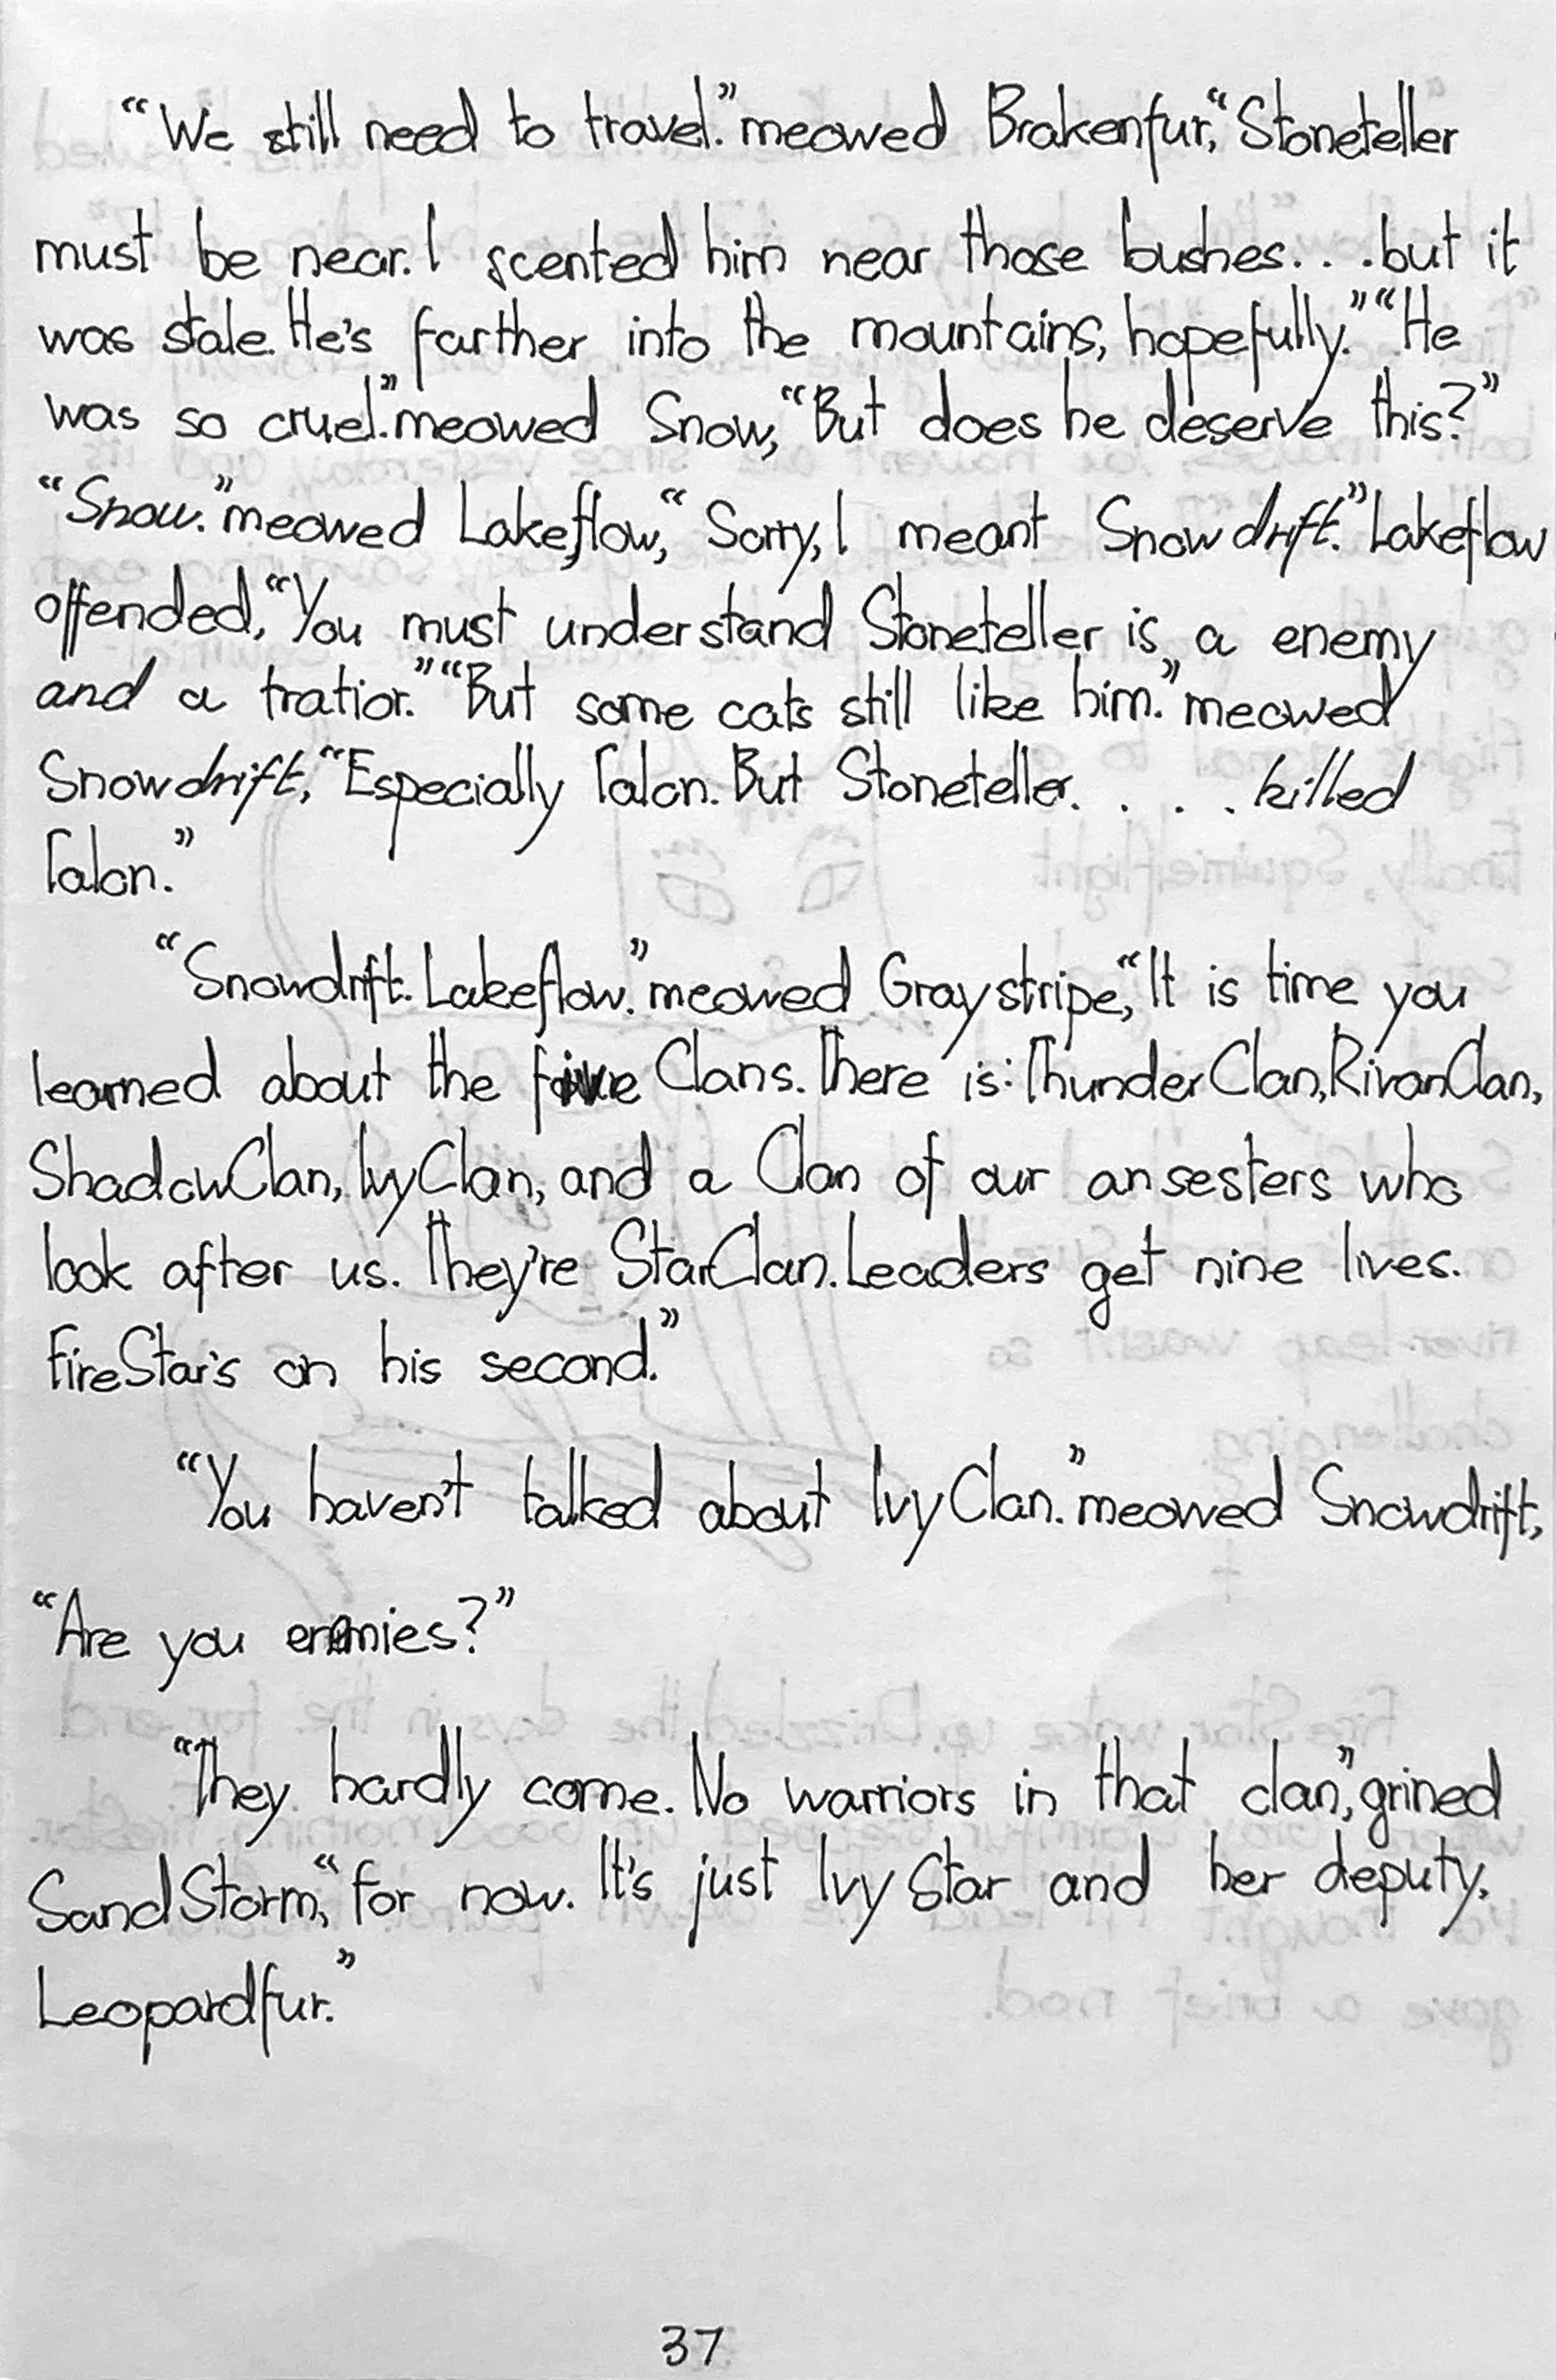 “We still need to travel.” meowed Brakenfur, “Stoneteller
must be near. I scented him near those bushes. . . .but it
was stale. He's farther into the mountains, hopefully.” “He
was so cruel.” meowed Snow, “But does he deserve this?”
“Snow.” meowed Lakeflow, “Sorry, I meant Snowdrift.” Lakeflow
offended, “You must understand Stoneteller is a enemy
and a tratior.” “But some cats still like him.” meowed
Snowdrift, “Especially Talon. But Stoneteller. . . . killed
Talon.”
“Snowdrift. Lakeflow.” meowed Graystripe, “It is time you
learned about the five Clans. There is: ThunderClan, RivanClan,
ShadowClan, IvyClan, and a Clan of our ansesters who
look after us. They're StarClan. Leaders get nine lives.
FireStar's on his second.”
“You haven't talked about IvyClan.” meowed Snowdrift,
“Are you enemies?”
“They hardly come. No warriors in that clan,” grined
SandStorm, “for now. It's just IvyStar and her deputy,
Leopardfur.”
37